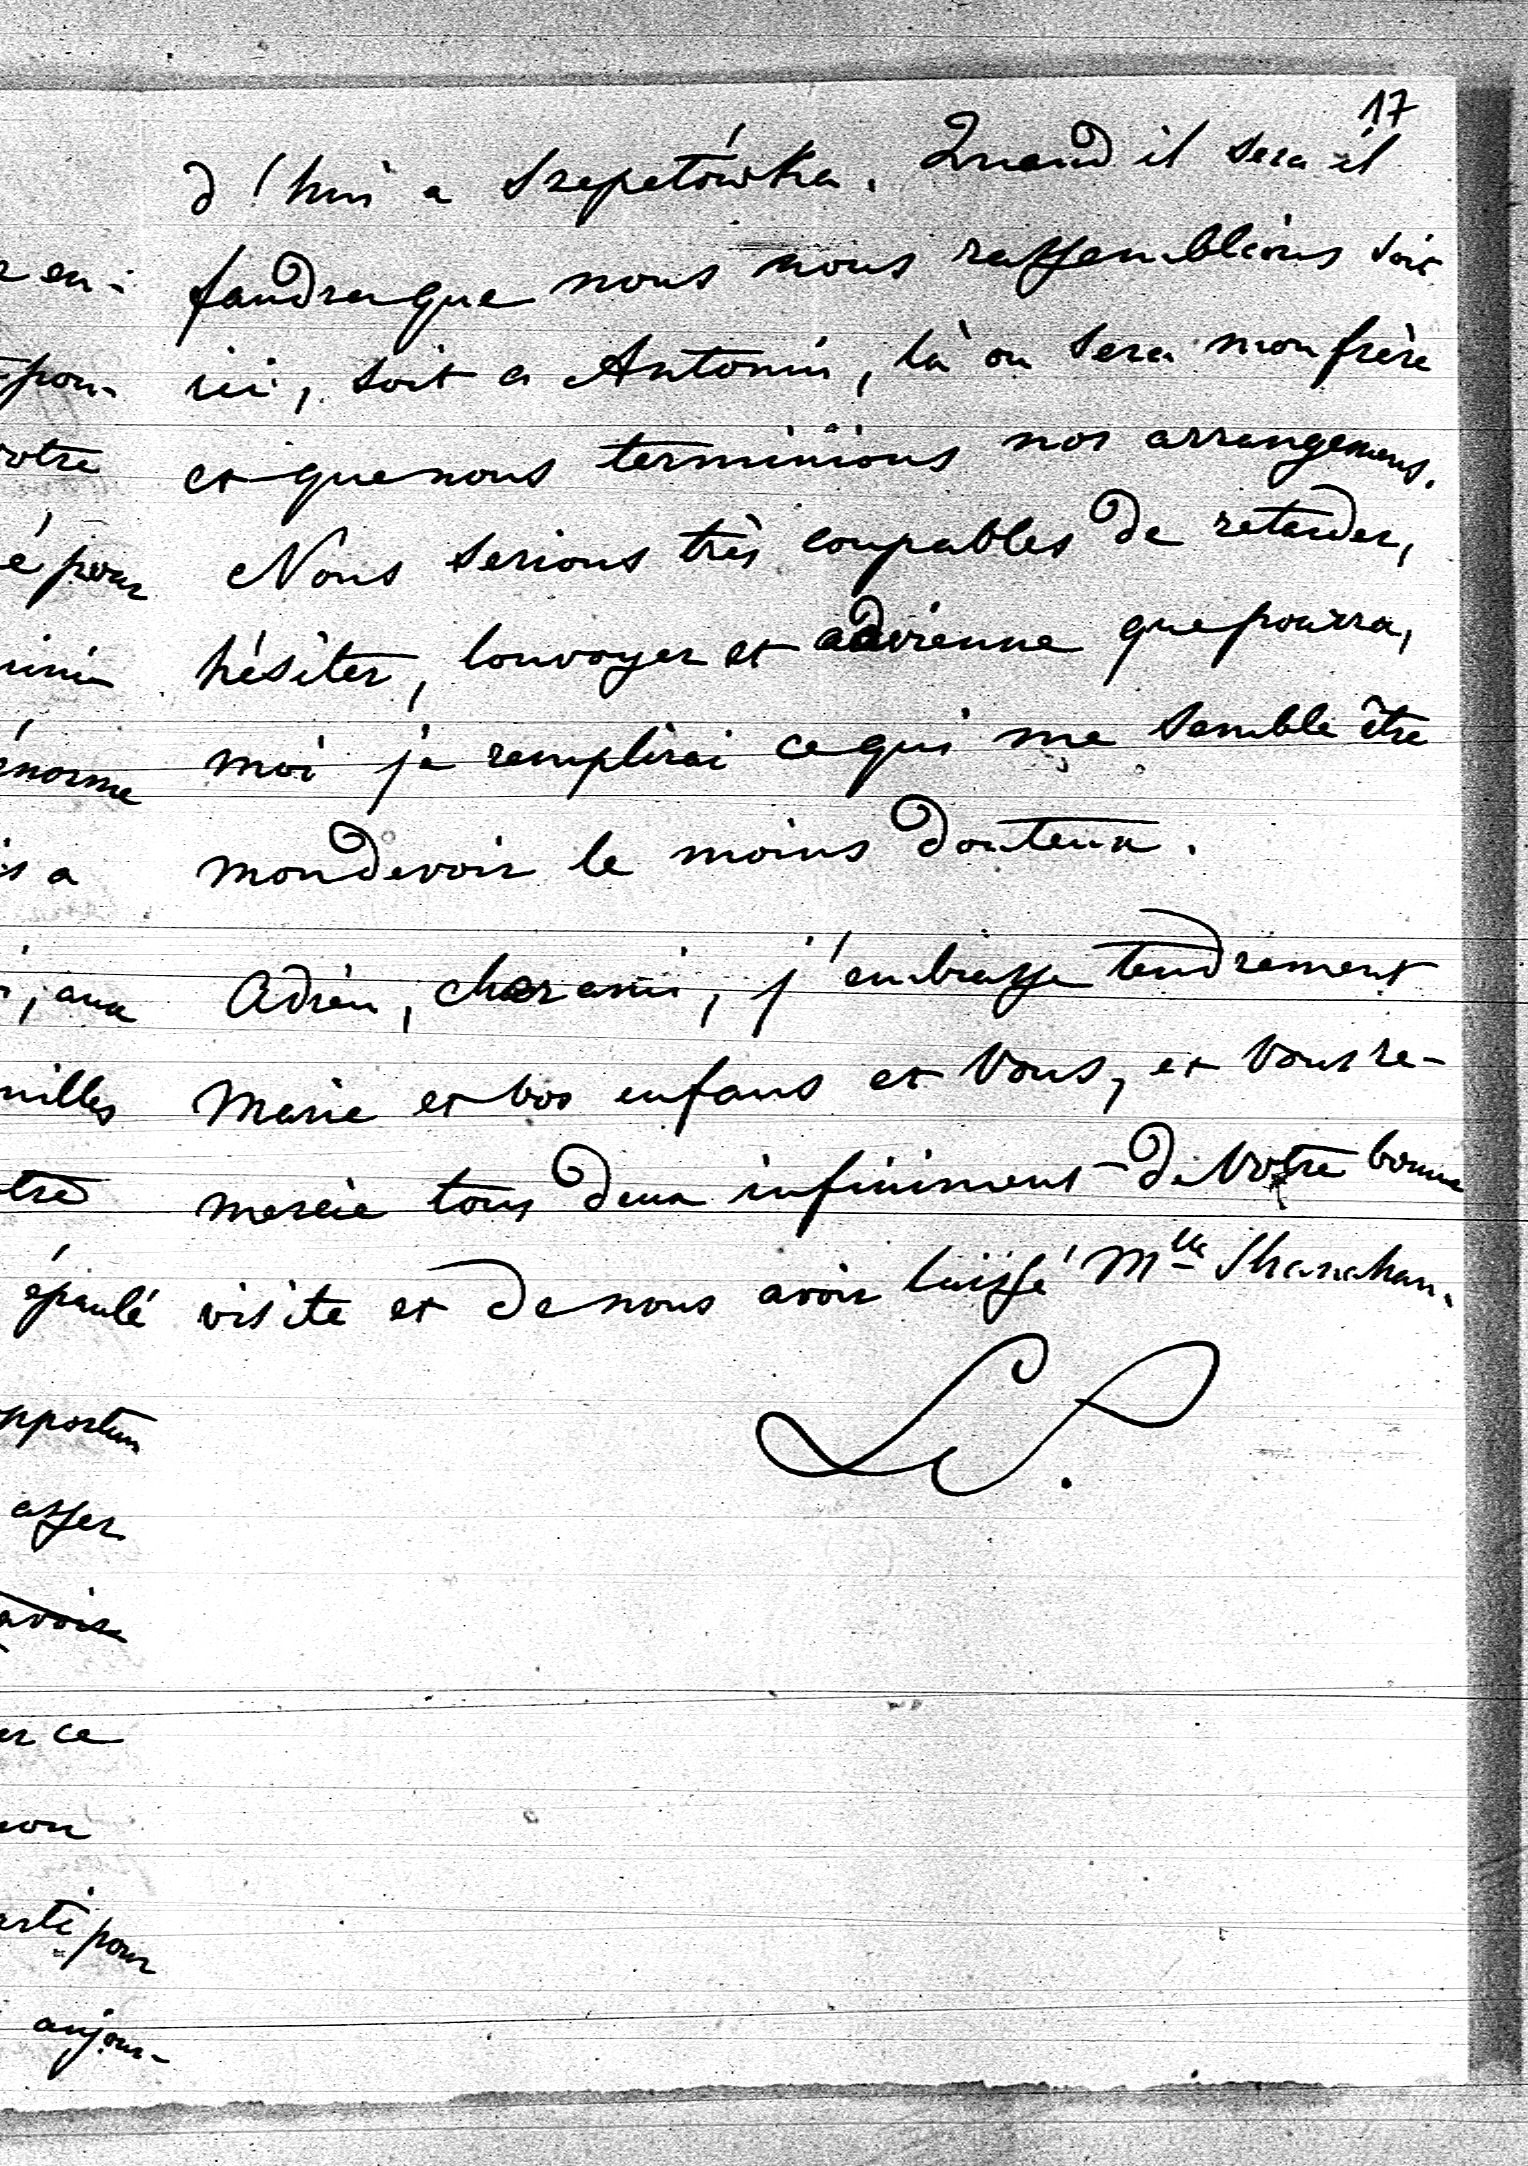 17
d'hui a Szepetówka. Quand il sera il
faudra que nous nous rassemblions soit
ici, soit a Antonin, là ou sera mon frère
et que nous terminions nos arrangemens.
Nous serions très coupables de retarder,
hésiter, louvoyer et advienne que pourra,
moi je remplirai ce qui me semble être
mon devoir le moins douteux.
Adieu, cher ami, j'embrasse tendrement
Marie et vos enfans et vous, et vous re-
mercie tous deux infiniment de votre bonne
visite et de nous avoir laissé Mlle Shanahan.
LS.
en-
pour
votre
é pour
énorme
is a
aux
milles
tre
épaulé
opportun
assez
avoir
er ce
non
arti pour
aujour-